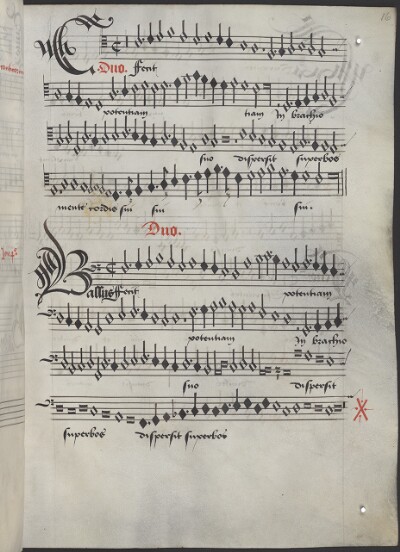 16
Duo. Fecit
potentiam
tiam In brachio
suo dispersit superbos
mente cordis sui sui sui.
Duo.
Bassus Fecit potentiam
potentiam In brachio
suo dispersit
superbos dispersit superbos